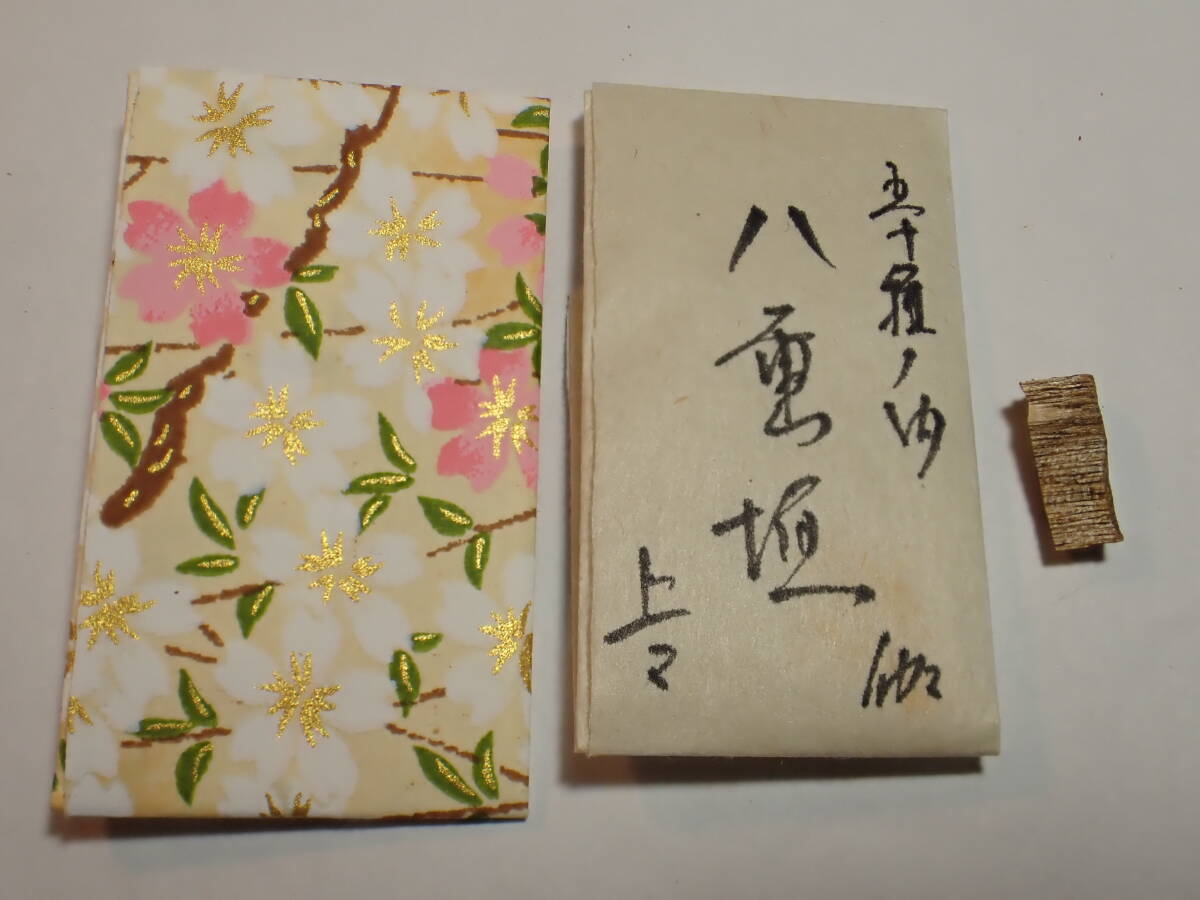 五十種ノ内
八重垣
伽
上々